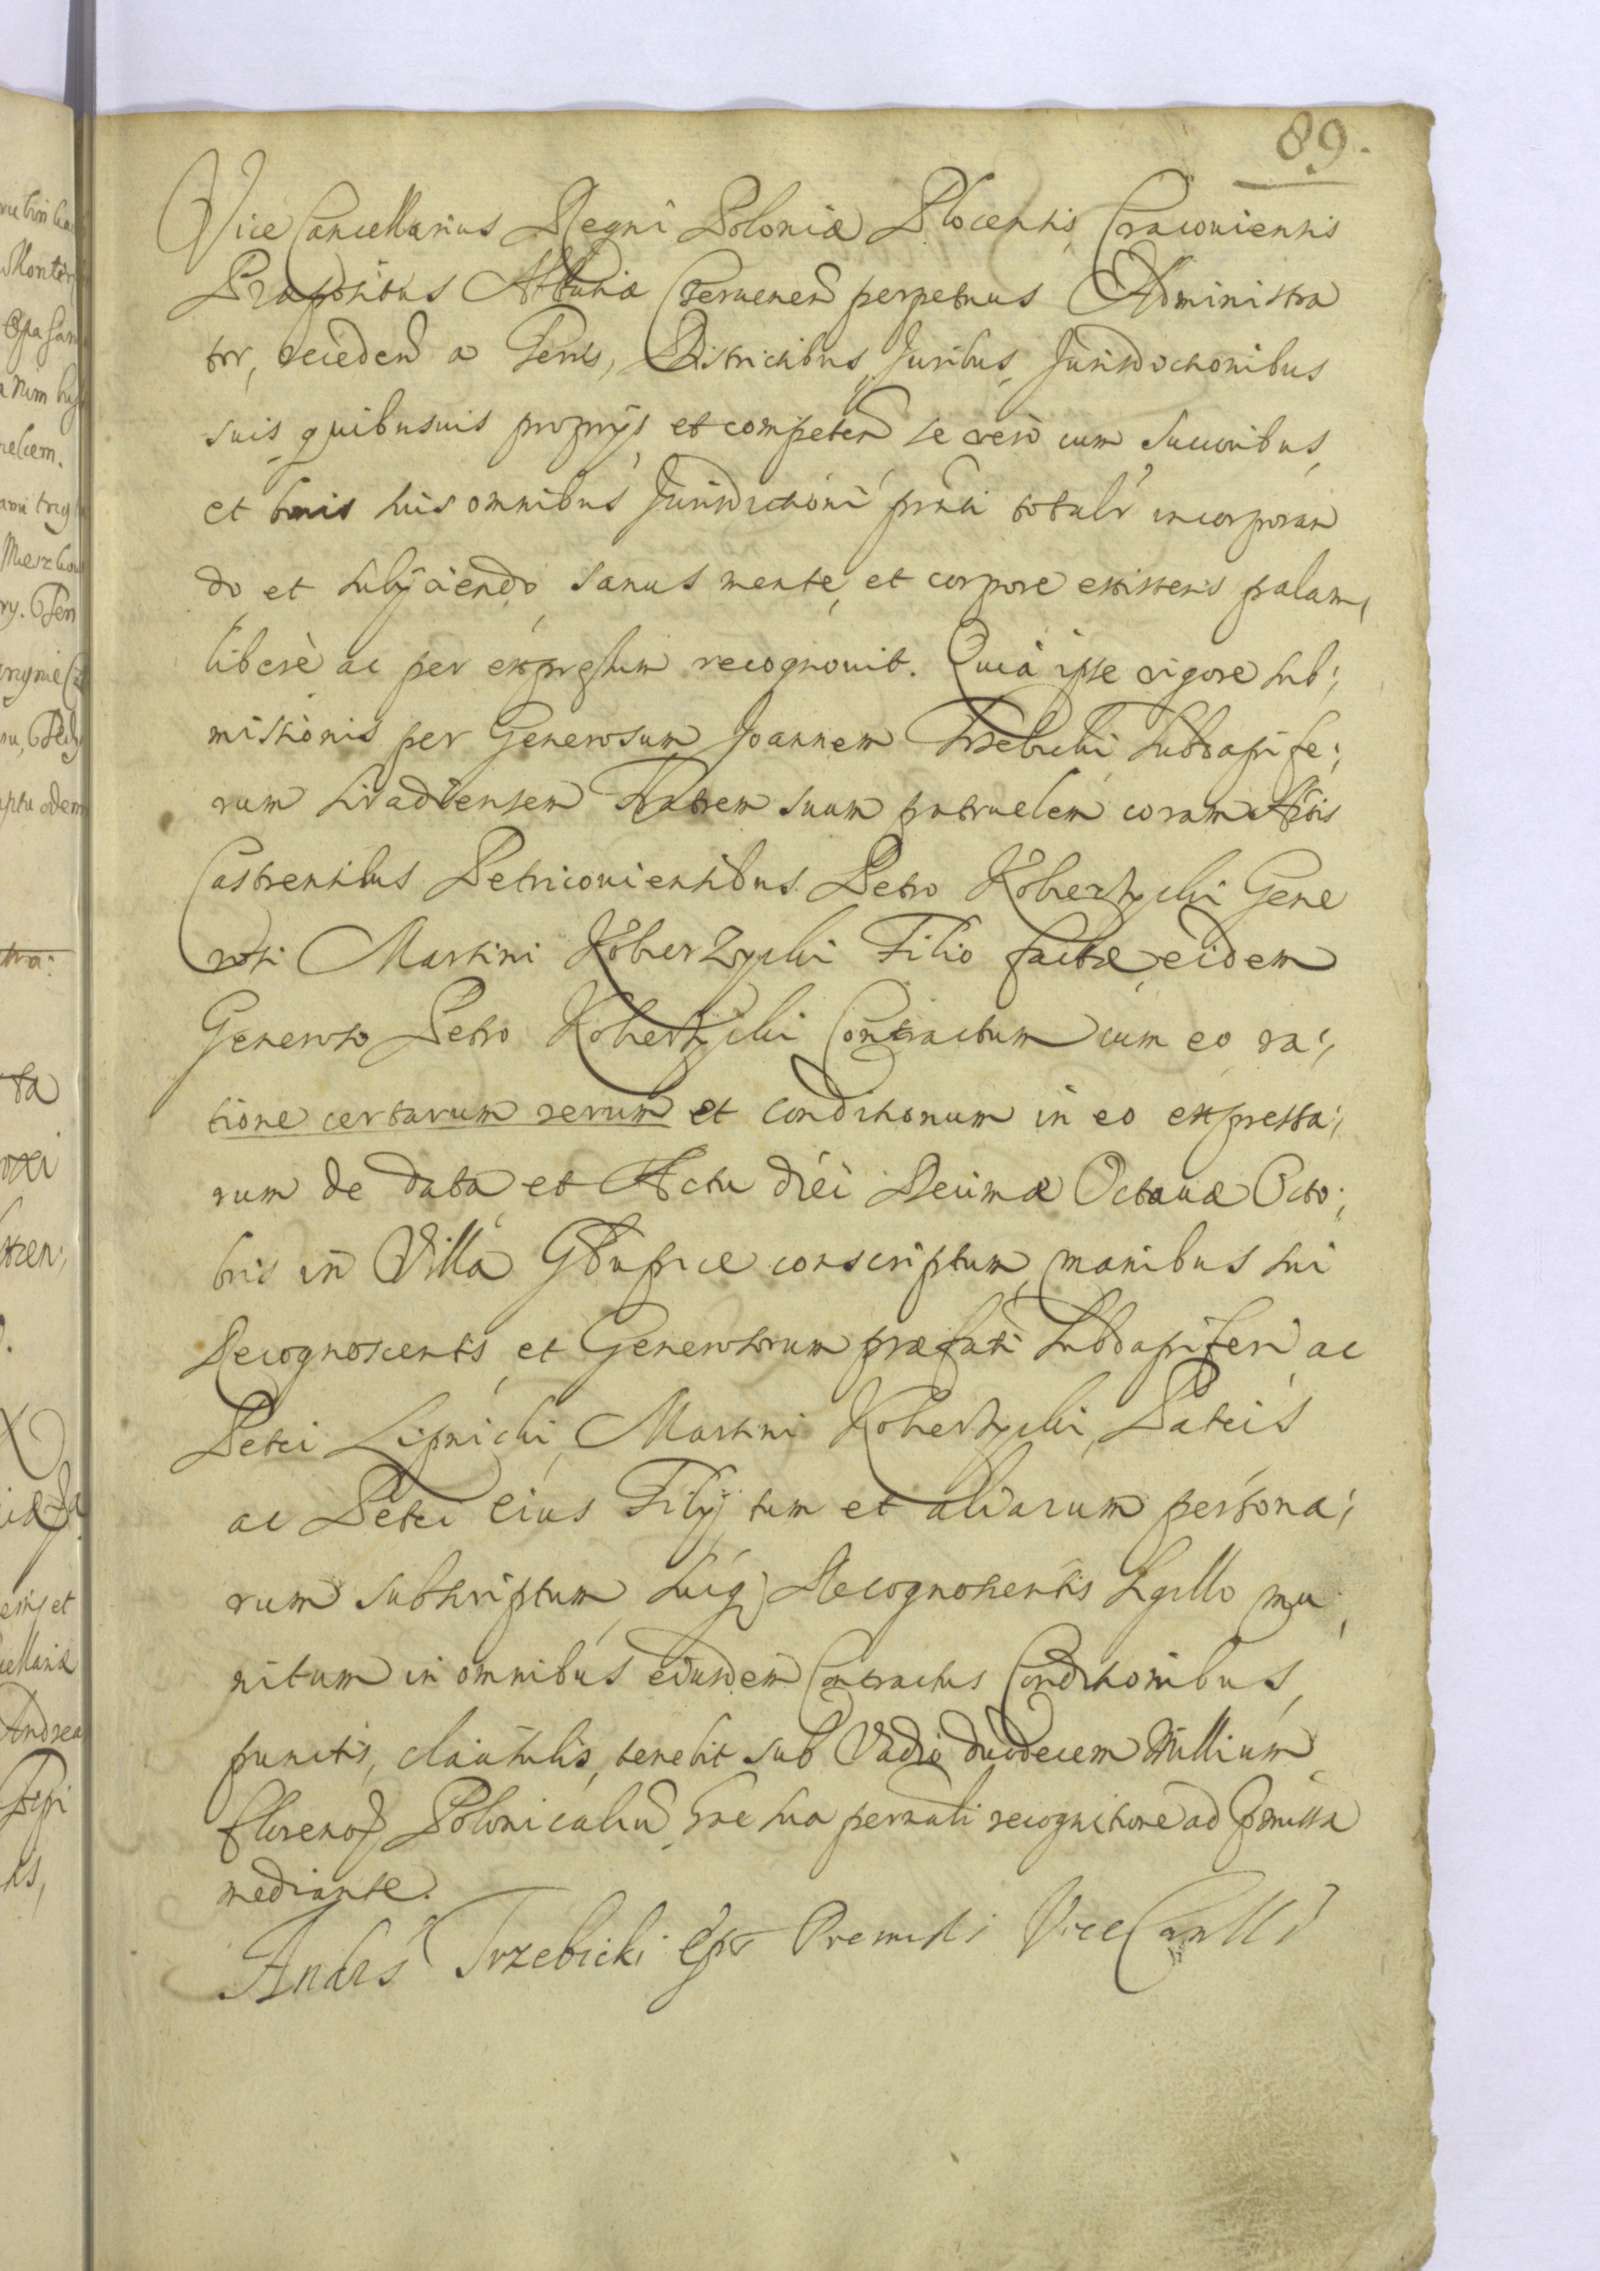 89.
Vice Cancellarius Regni Poloniæ Plocensis, Cracoviensis
Præpositus Abbatiæ Czervenen perpetuus Administra
tor, receden a Terris, Districtibus, Juribus, Jurisdictionibus
suis quibusvis proprijs, et competen se vero cum Succoribus,
et bonis suis omnibus Jurisdictioni pnti totalr incorporan
do et subijciendo, sanus mente, et corpore existens palam,
liberè ac per expressum recognovit. Quia ipse vigore sub;
missionis per Generosum Joannem Trzebicki Subdapife;
rum Siradiensem Fratrem suum patruelem coram Actis
Castrensibus Petricoviensibus Petro Kobierzycki Gene
rosi Martini Kobierzycki Filio factæ, eidem
Generoso Petro Kobierzycki Contractum cum eo ra;
tione certarum rerum et conditionum in eo expressa;
rum de data et Actu diei Decimæ Octavæ Octo;
bris in Villa Głupice conscriptum, manibus sui
Recognoscentis, et Generosorum præfati Subdapiferi ac
Petri Lipnicki, Martini Kobierzycki, Patris
ac Petri eius Filij tum et aliarum persona;
rum subscriptum, suiq Recognoscentis Sigillo mu,
nitum in omnibus eiusdem Contractus Conditionibus,
punctis, clausulis, tenebit sub Vadio duodecem Millium
florenor Polonicaliu, hac sua pernali recognitione ad pmissa
mediante.
Andrs Trzebicki Eps Premisli ViceCanlls